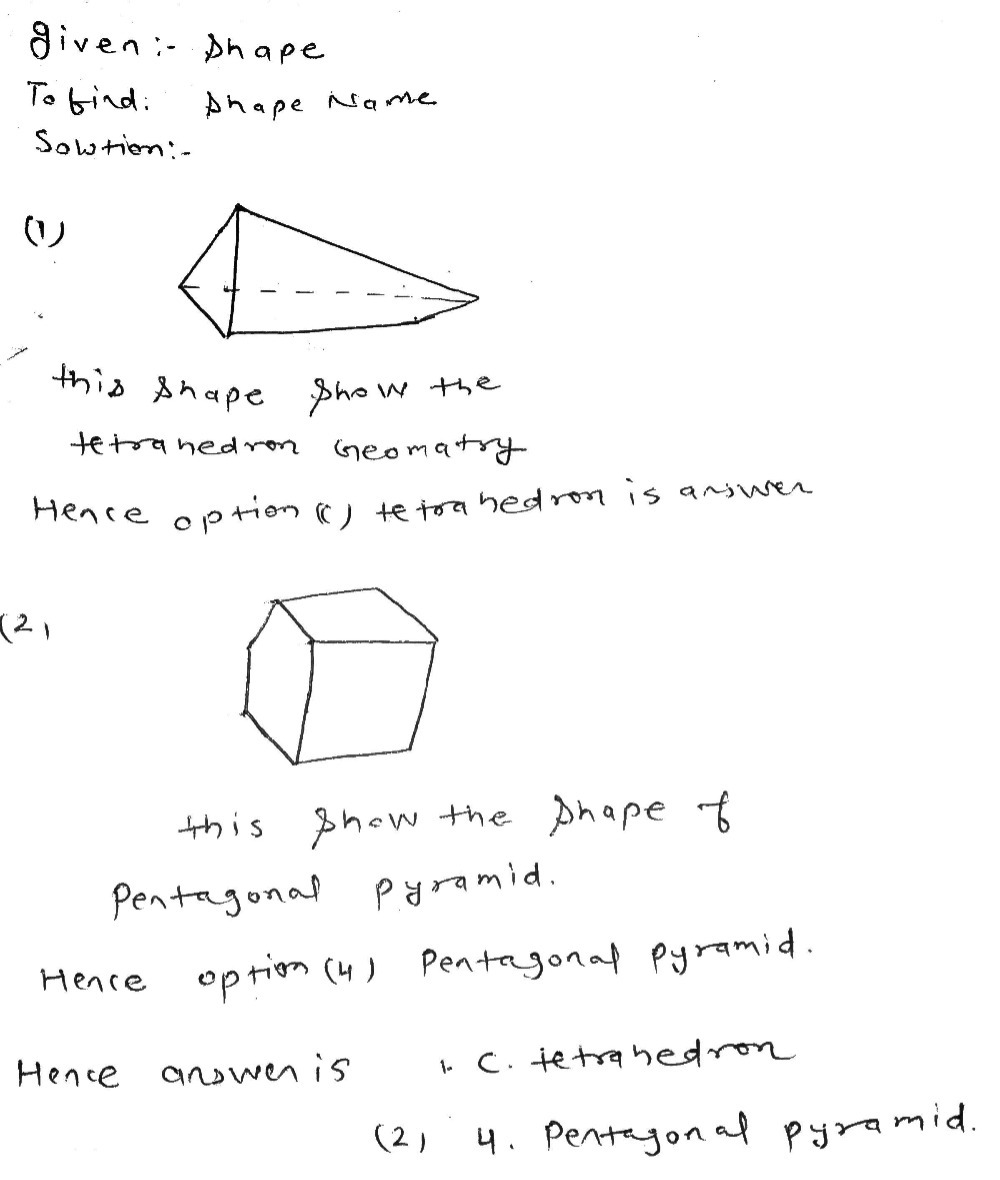 given :- shape
To find: shape Name
Solution:-
(1)
this shape show the
tetrahedron Geomatry
Hence option (c) tetrahedron is answer
(2)
this show the shape of
Pentagonal pyramid.
Hence option (4) Pentagonal pyramid.
Hence answer is 1. C. tetrahedron
(2) 4. Pentagonal pyramid.